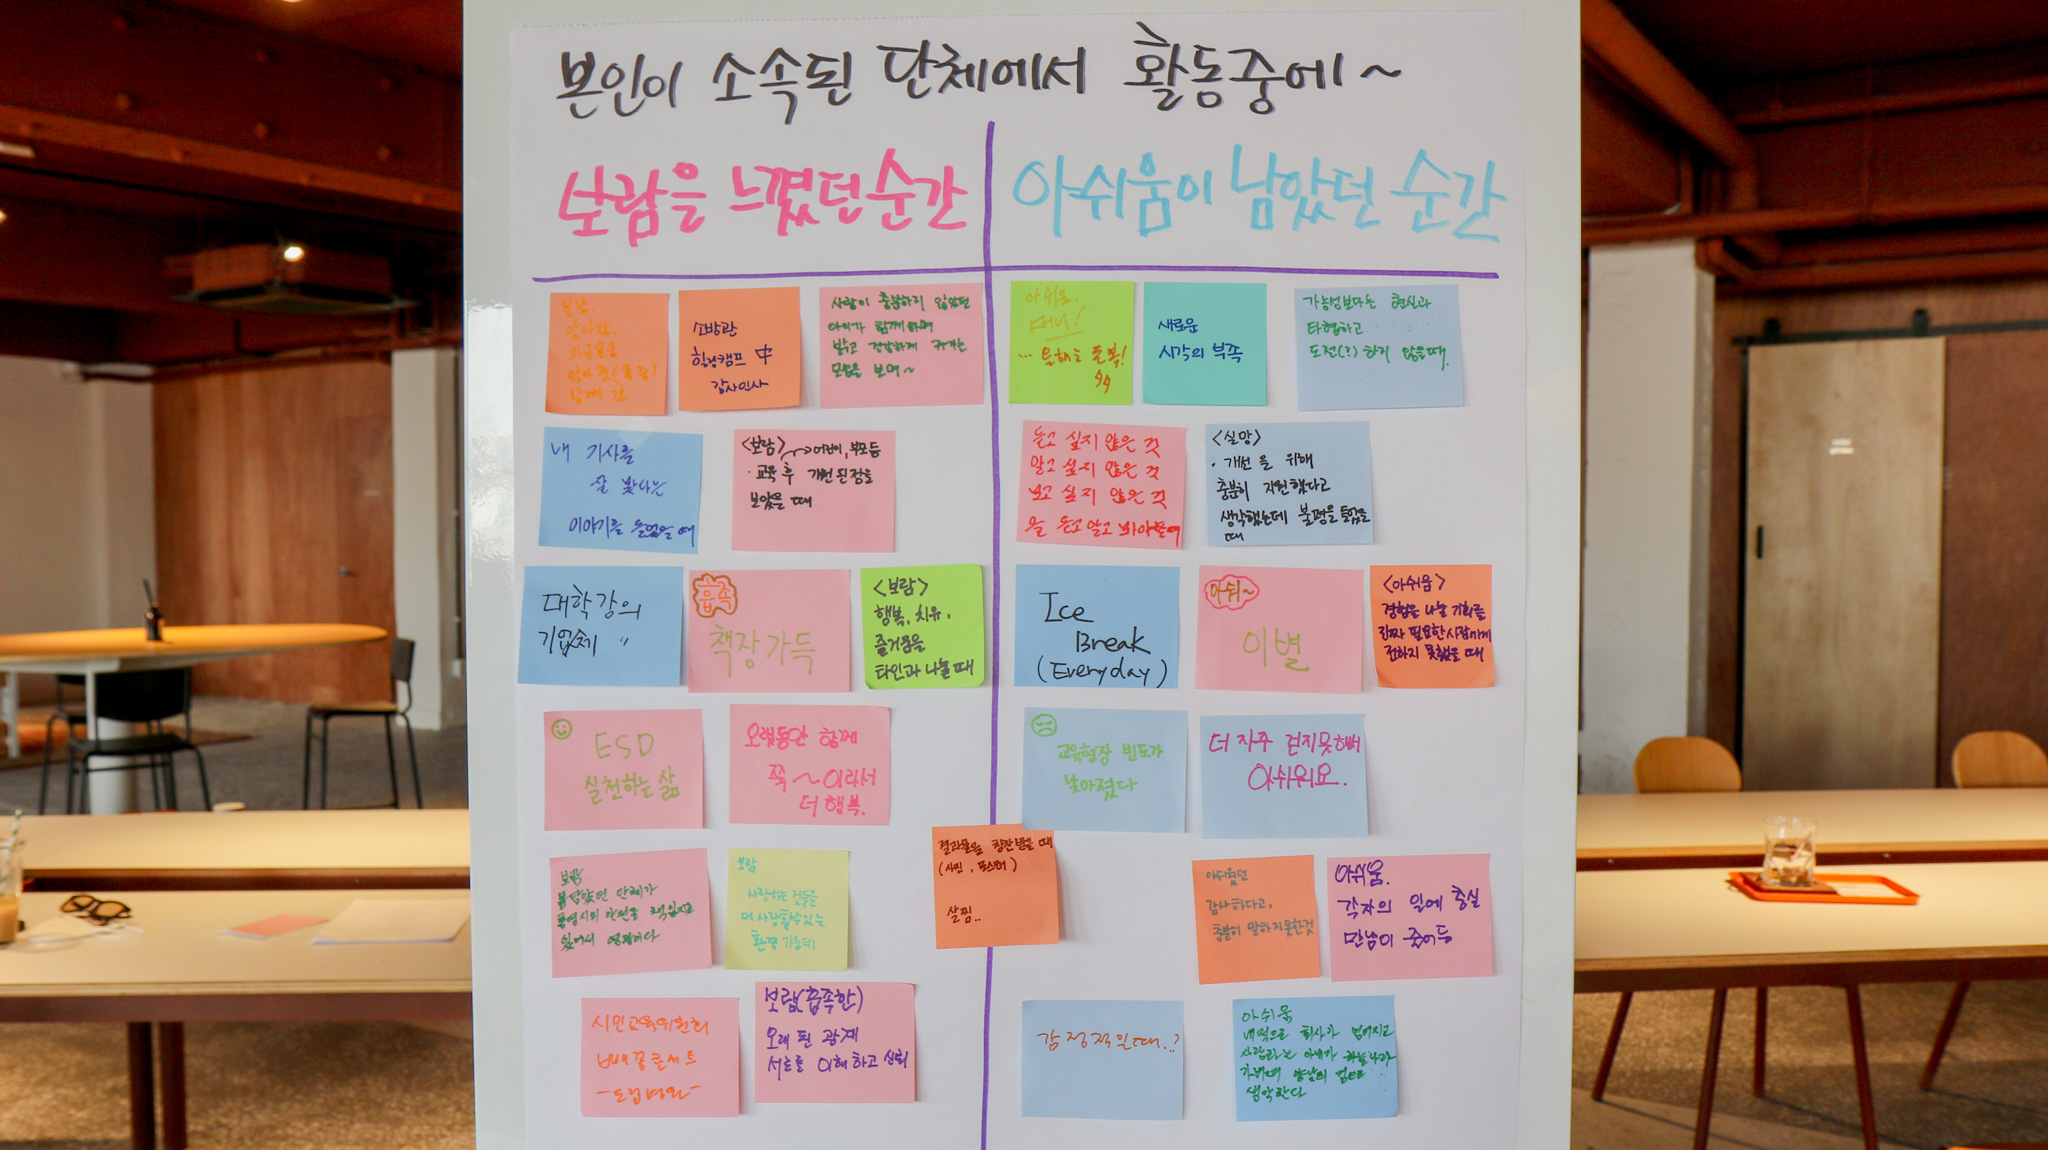 본인이 소속된 단체에서 활동중에~
보람을 느꼈던 순간
아쉬움이 남았던 순간
보람.
함께 함
소방관
힐링캠프 中
감사인사
사랑이 충분하지 않았던
아이가 함께하며
밝고 건강하게 커가는
모습을 보며~
내 기사를
잘 봤다는
이야기를 들었을 때
<보람> → 어린이, 부모 등
· 교육 후 개선된 점을
보았을 때
대학강의
기업체 〃
흡족
책장가득
<보람>
행복, 치유,
즐거움을
타인과 나눌 때
ESD
실천하는 삶
오랫동안 함께
쭉~이라서
더 행복.
보람
몸담았던 단체가
책임지고
있어서
보람
사랑하는 것들을
더 사랑할수있는
환경 가운데
시민교육위원회
보람(흡족한)
오래 된 관계
서로를 이해하고 신뢰
결과물을 칭찬받을 때
(사진, 포스터)
살찜..
아쉬움.
머니!
... 올해는 돈복!
새로운
시각의 부족
가능성보다는 현실과
타협하고
도전(?)하지 않을때.
듣고 싶지 않은 것
알고 싶지 않은 것
보고 싶지 않은 것
을 듣고 알고 봐야할때
<실망>
· 개선을 위해
충분히 지원했다고
생각했는데 불평을 들었을
때
Ice
Break
(Everyday)
아쉬~
이별
<아쉬움>
경험을 나눌 기회를
진짜 필요한 사람에게
전하지 못했을 때
교육현장 빈도가
낮아졌다
더 자주 걷지못해서
아쉬워요.
아쉬웠던
감사하다고,
충분히 말하지못한것
아쉬움.
각자의 일에 충실
만남이 줄어듦
감정적일때..?
아쉬움
내적으로 회사가 넘어지고
사랑하는 아내가 하늘나라
생각한다